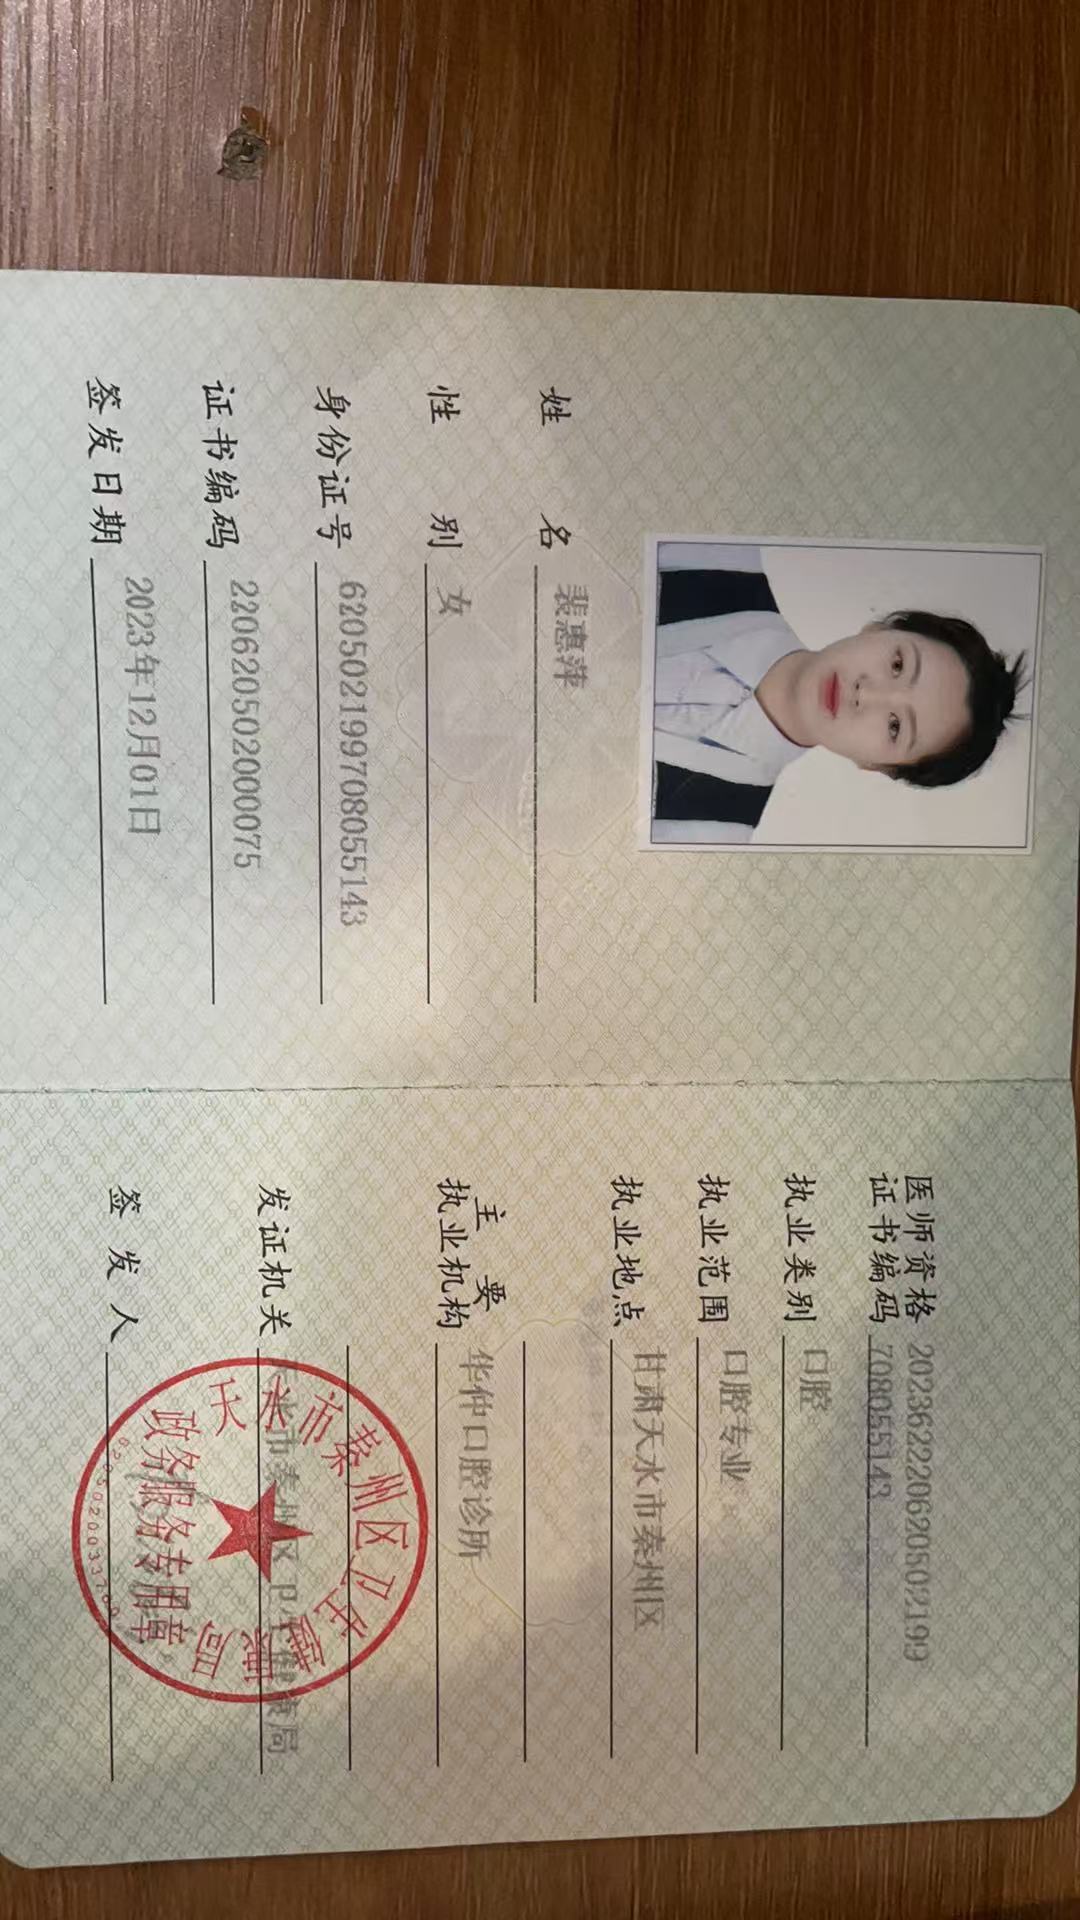 姓名 裴惠萍
性别 女
身份证号 620502199708055143
证书编码 220620502000075
签发日期 2023年12月01日
医师资格证书编码 202362220620502199708055143
执业类别 口腔
执业范围 口腔专业
执业地点 甘肃天水市秦州区
主要执业机构 华仲口腔诊所
发证机关 天水市秦州区卫生健康局
签发人
天水市秦州区卫生健康局
政务服务专用章